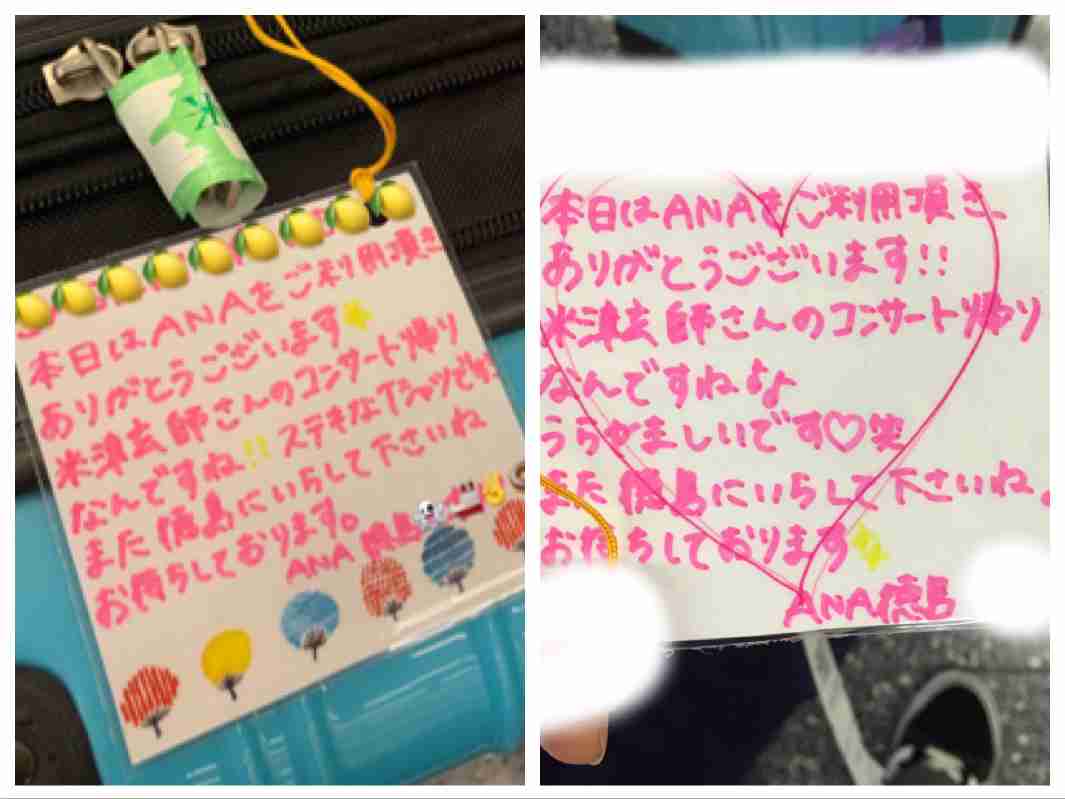 米
本日はANAをご利用頂き
ありがとうございます
米津玄師さんのコンサート帰り
なんですね!! ステキなTシャツです
また徳島にいらして下さいね
お待ちしております。
ANA 徳島
本日はANAをご利用頂き、
ありがとうございます!!
米津玄師さんのコンサート帰り
なんですね♪
うらやましいです♡笑
また徳島にいらして下さいね。
お待ちしております
ANA徳島